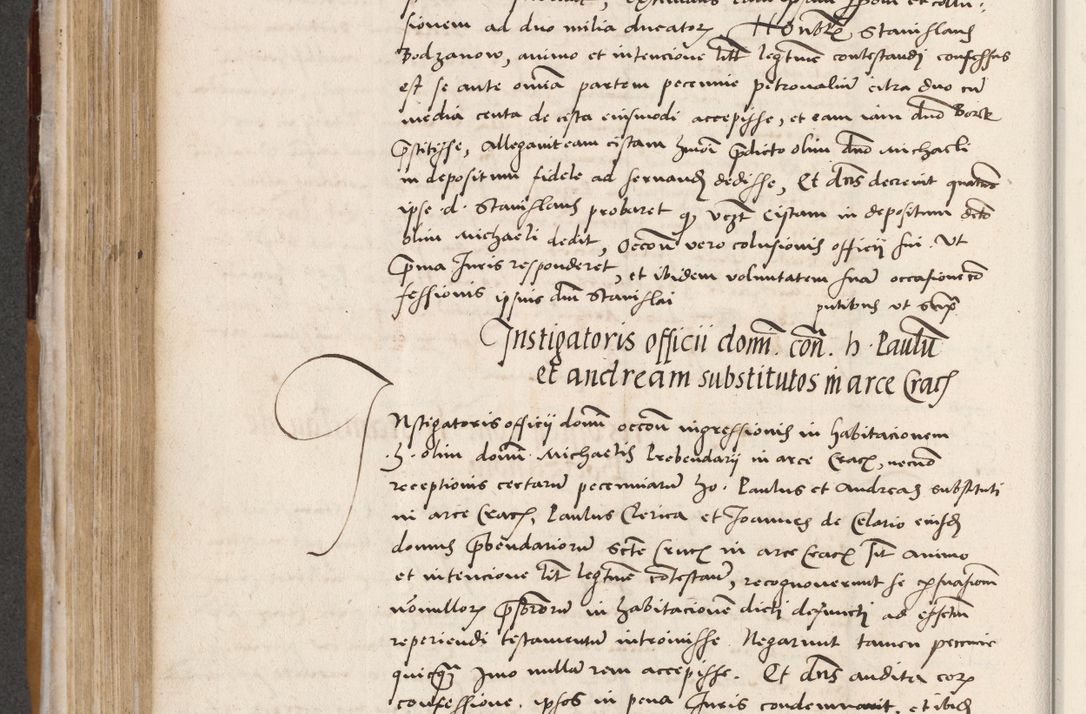 sionem ad duo milia ducatorꝝ Honorꝫ Stanislaus
Bodzanow, animo et intencione litꝫ legittime contestandj confessus
est se ante omnia partem pecunie petronalium citra duo cum
media centa de cista eiusmodi accepisse, et eam iam dno Borek
prestitisse, Allegauit eam cistam hmoi predicto olim dno Michaeli
in depositum fidele ad seruandꝫ dedisse, Et dns decreuit quatenus
ipse d. Stanislaus probaret qꝫ vezt cistam in depositum dicto
olim Michaeli dedit, Occon vero colusionis officij sui. Vt
prima Juris responderet, et ibidem voluntatem suam occasione con
fessionis ipsius dni Stanislai
putibus vt supra
Instigatoris officii domi. con. h. Paulum
et andream substitutos in arce Crac
Instigatoris officij domi occon ingressionis in habitacionem
h. olim domi Michaelis Prebendarij in arce Cracꝫ, necno
receptionis certarum pecuniarum ho. Paulus et Andreas substituti
in arce Cracꝫ, Paulus Clerica et Joannes de Celario eiusdꝫ
domus prebendariorum Scte Crucꝫ in arce Cracꝫ sit animo
et intencione litꝫ legittime contestan, recognouerunt se ex suasione
nonullorꝝ presbrorum in habitacionem dicti defuncti ad effectum
reperiendi testamentum introiuisse. Negarunt tamen pecunie
quicqꝫ Imo nullam rem accepisse. Et dns audita eorꝝ
confessione. ipsos in pena Juris condemnauit, et ibidꝫ